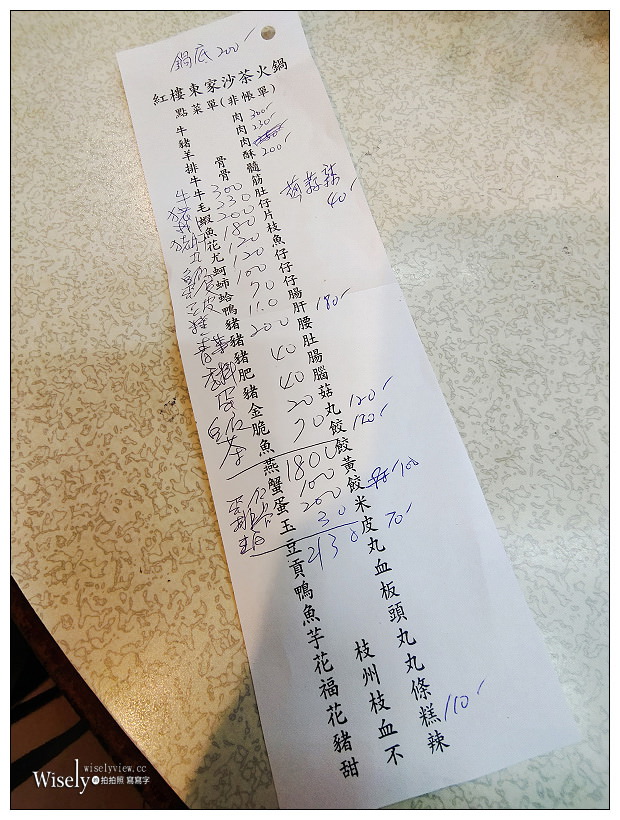 鍋底 200
紅樓東家沙茶火鍋
點菜單(非帳單)
牛 肉 300
豬 肉 230
羊 肉
排 骨 酥 200
牛 骨 髓
牛 筋
毛 肚
蝦 仔
魚 片
花 枝
尤 魚
蚵 仔
蛳 仔
蛤 仔
鴨 腸
豬 肝 180
豬 腰
豬 肚
肥 腸
豬 腦
金 菇
脆 丸 120
魚 餃 120
燕 餃
蟹 黃
蛋 餃 100
玉 米
豆 皮 70
貢 丸
鴨 血
魚 板
芋 頭
花 枝 丸
福 州 丸
花 枝 條
豬 血 糕 110
甜 不 辣
40
牛 300
豬 230
200
180
120
120
100
70
110
200
40
40
20
茶 70
1800
100
200
30
2130
wiselyview.cc
Wisely的拍拍照 寫寫字